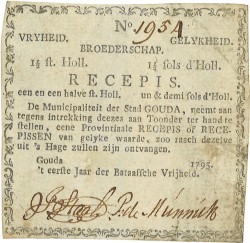 No. 1954
VRYHEID. GELYKHEID.
BROEDERSCHAP.
1½ st. Holl. 1½ sols d'Holl.
RECEPIS.
een en een halve st. Holl. un & demi sols d'Holl.
De Municipaliteit der Stad GOUDA, neemt aan
tegens intrekking deezes aan Toonder ter hand te
stellen, eene Provinciale RECEPIS of RECE-
PISSEN van gelyke waarde, zoo rasch dezelve
uit 's Hage zullen zijn ontvangen.
Gouda 1795.
't eerste Jaar der Bataafsche Vryheid.
P. de Munnick